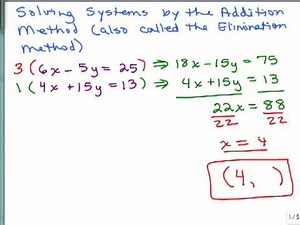 Solving Systems by the Addition
Method (also called the Elimination
method)
3 (6x - 5y = 25) ⇒ 18x - 15y = 75
1 (4x + 15y = 13) ⇒ 4x + 15y = 13
22x = 88
22 22
x = 4
(4, )
1/5